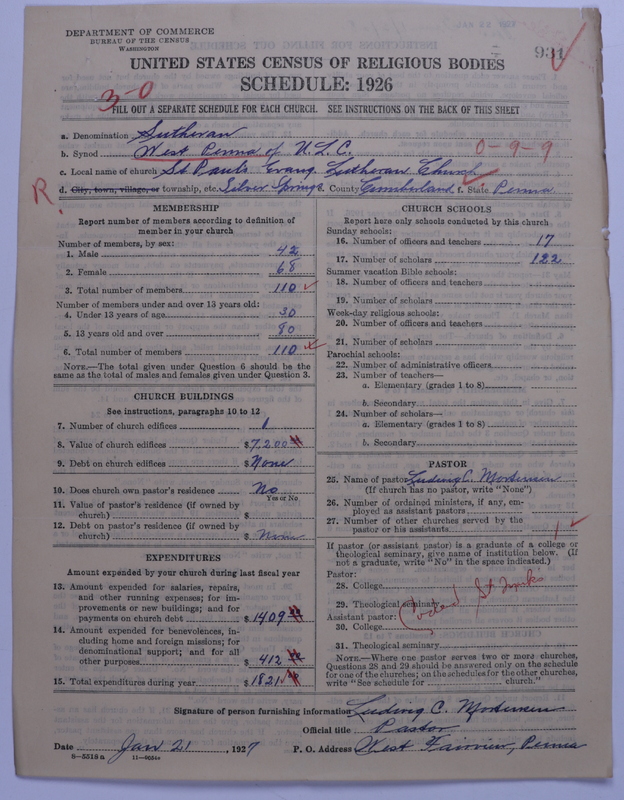 DEPARTMENT OF COMMERCE
BUREAU OF THE CENSUS
WASHINGTON
931
UNITED STATES CENSUS OF RELIGIOUS BODIES
SCHEDULE: 1926
3-0
FILL OUT A SEPARATE SCHEDULE FOR EACH CHURCH. SEE INSTRUCTIONS ON THE BACK OF THIS SHEET
a. Denomination Lutheran
b. Synod West Penna of U.L.C. 0-9-9
c. Local name of church St Pauls Evang. Lutheran Church
R. d. City, town, village, or township, etc. Silver Springs. County Cumberland f. State Penna
MEMBERSHIP
Report number of members according to definition of member in your church
Number of members, by sex:
1. Male 42
2. Female 68
3. Total number of members 110
Number of members under and over 13 years old:
4. Under 13 years of age 30
5. 13 years old and over 80
6. Total number of members 110
NOTE.—The total given under Question 6 should be the same as the total of males and females given under Question 3.
CHURCH BUILDINGS
See instructions, paragraphs 10 to 12
7. Number of church edifices 1
8. Value of church edifices $7,200
9. Debt on church edifices $None
10. Does church own pastor's residence No
Yes or No
11. Value of pastor's residence (if owned by church) $
12. Debt on pastor's residence (if owned by church) $ None
EXPENDITURES
Amount expended by your church during last fiscal year
13. Amount expended for salaries, repairs, and other running expenses; for improvements or new buildings; and for payments on church debt $1409
14. Amount expended for benevolences, including home and foreign missions; for denominational support; and for all other purposes $412
15. Total expenditures during year $1821
CHURCH SCHOOLS
Report here only schools conducted by this church
Sunday schools:
16. Number of officers and teachers 17
17. Number of scholars 122
Summer vacation Bible schools:
18. Number of officers and teachers
19. Number of scholars
Week-day religious schools:
20. Number of officers and teachers
21. Number of scholars
Parochial schools:
22. Number of administrative officers
23. Number of teachers—
a. Elementary (grades 1 to 8)
b. Secondary
24. Number of scholars—
a. Elementary (grades 1 to 8)
b. Secondary
PASTOR
25. Name of pastor Luding C. Mortensen
(If church has no pastor, write "None")
26. Number of ordained ministers, if any, employed as assistant pastors
27. Number of other churches served by the pastor or his assistants 1
If pastor (or assistant pastor) is a graduate of a college or theological seminary, give name of institution below. (If not a graduate, write "No" in the space indicated.)
Pastor:
28. College
29. Theological seminary
Assistant pastor:
30. College
31. Theological seminary
NOTE.—Where one pastor serves two or more churches, Questions 28 and 29 should be answered only on the schedule for one of the churches; on the schedules for the other churches, write "See schedule for church."
Signature of person furnishing information Luding C. Mortensen
Official title Pastor
Date Jan 21, 1927 P. O. Address West Fairview, Penna
8-5518a 11-9054